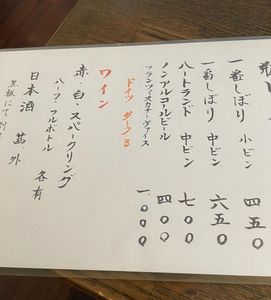 一番しぼり 小ビン 四五〇
一番しぼり 中ビン 六五〇
ハートランド 中ビン 七〇〇
ノンアルコールビール 四〇〇
フランツィスカナーヴァイス 一、〇〇〇
ドイツ ダーク3
ワイン
赤・白・スパークリング
ハーフ・フルボトル 各有
日本酒
黒板にて